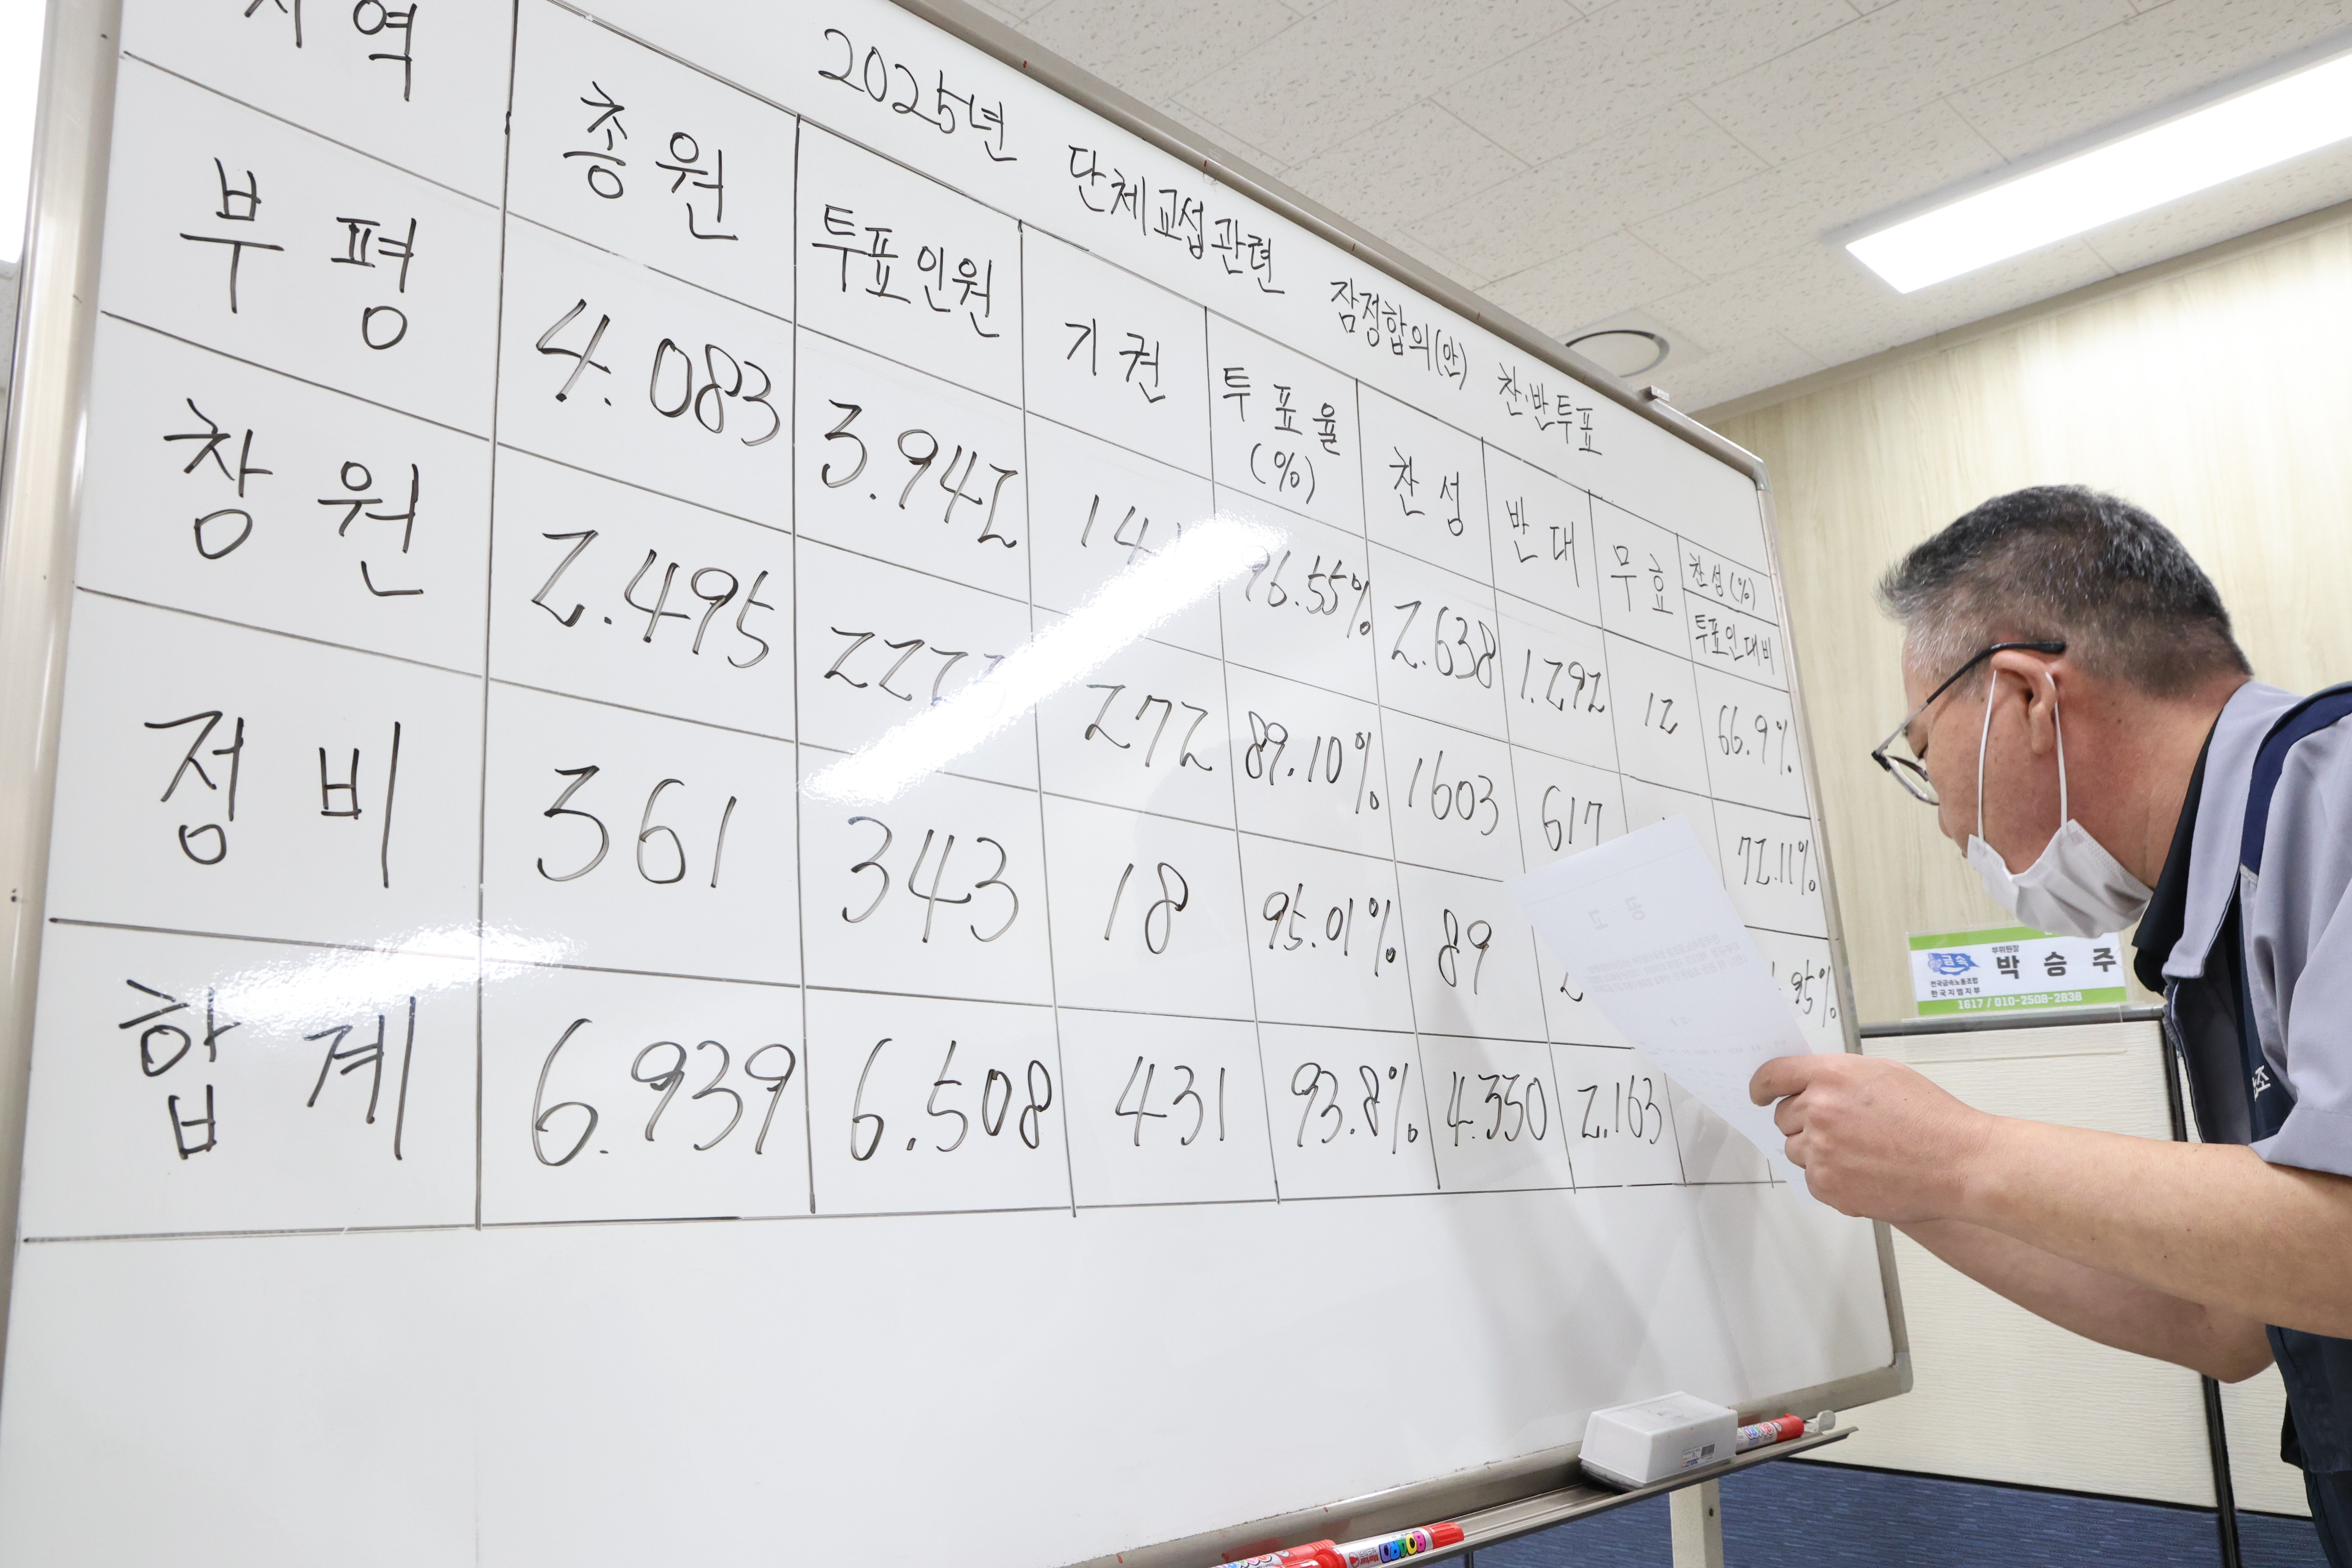 2025년 단체교섭관련 잠정합의(안) 찬·반투표
지역 총원 투표인원 기권 투표율(%) 찬성 반대 무효 찬성(%) 투표인대비
부평 4.083 3.942 141 96.55% 2.638 1.292 12 66.9%
창원 2.495 2223 272 89.10% 1603 617 72.11%
정비 361 343 18 95.01% 89
합계 6.939 6.508 431 93.8% 4.330 2.163
금속
부위원장
박승주
전국금속노동조합
한국지엠지부
1617 / 010-2508-2838
공고
BOARD
Marker